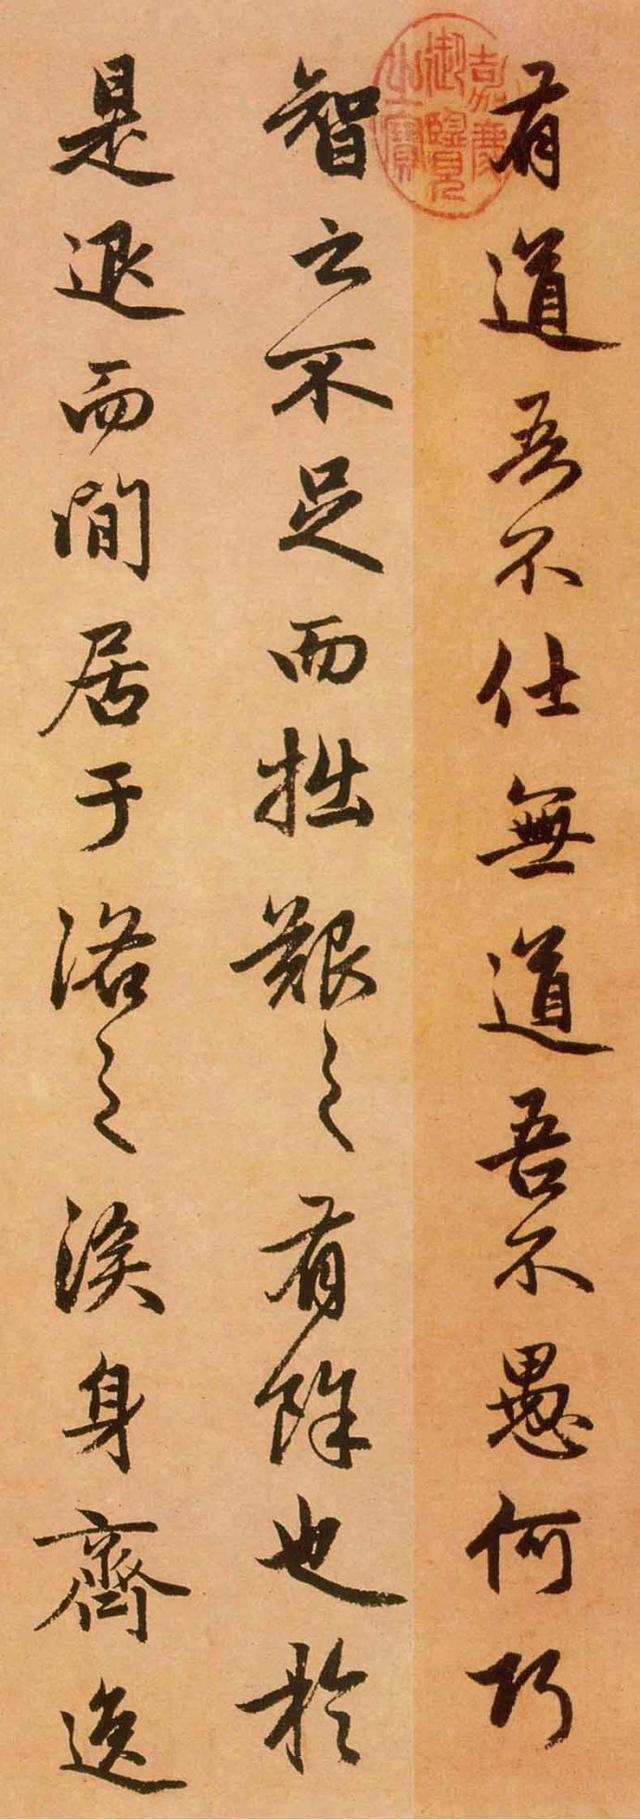 有道吾不仕無道吾不愚何巧
智之不足而拙艱之有餘也於
是退而閒居于洛之涘身齊逸
嘉慶御覽之寶